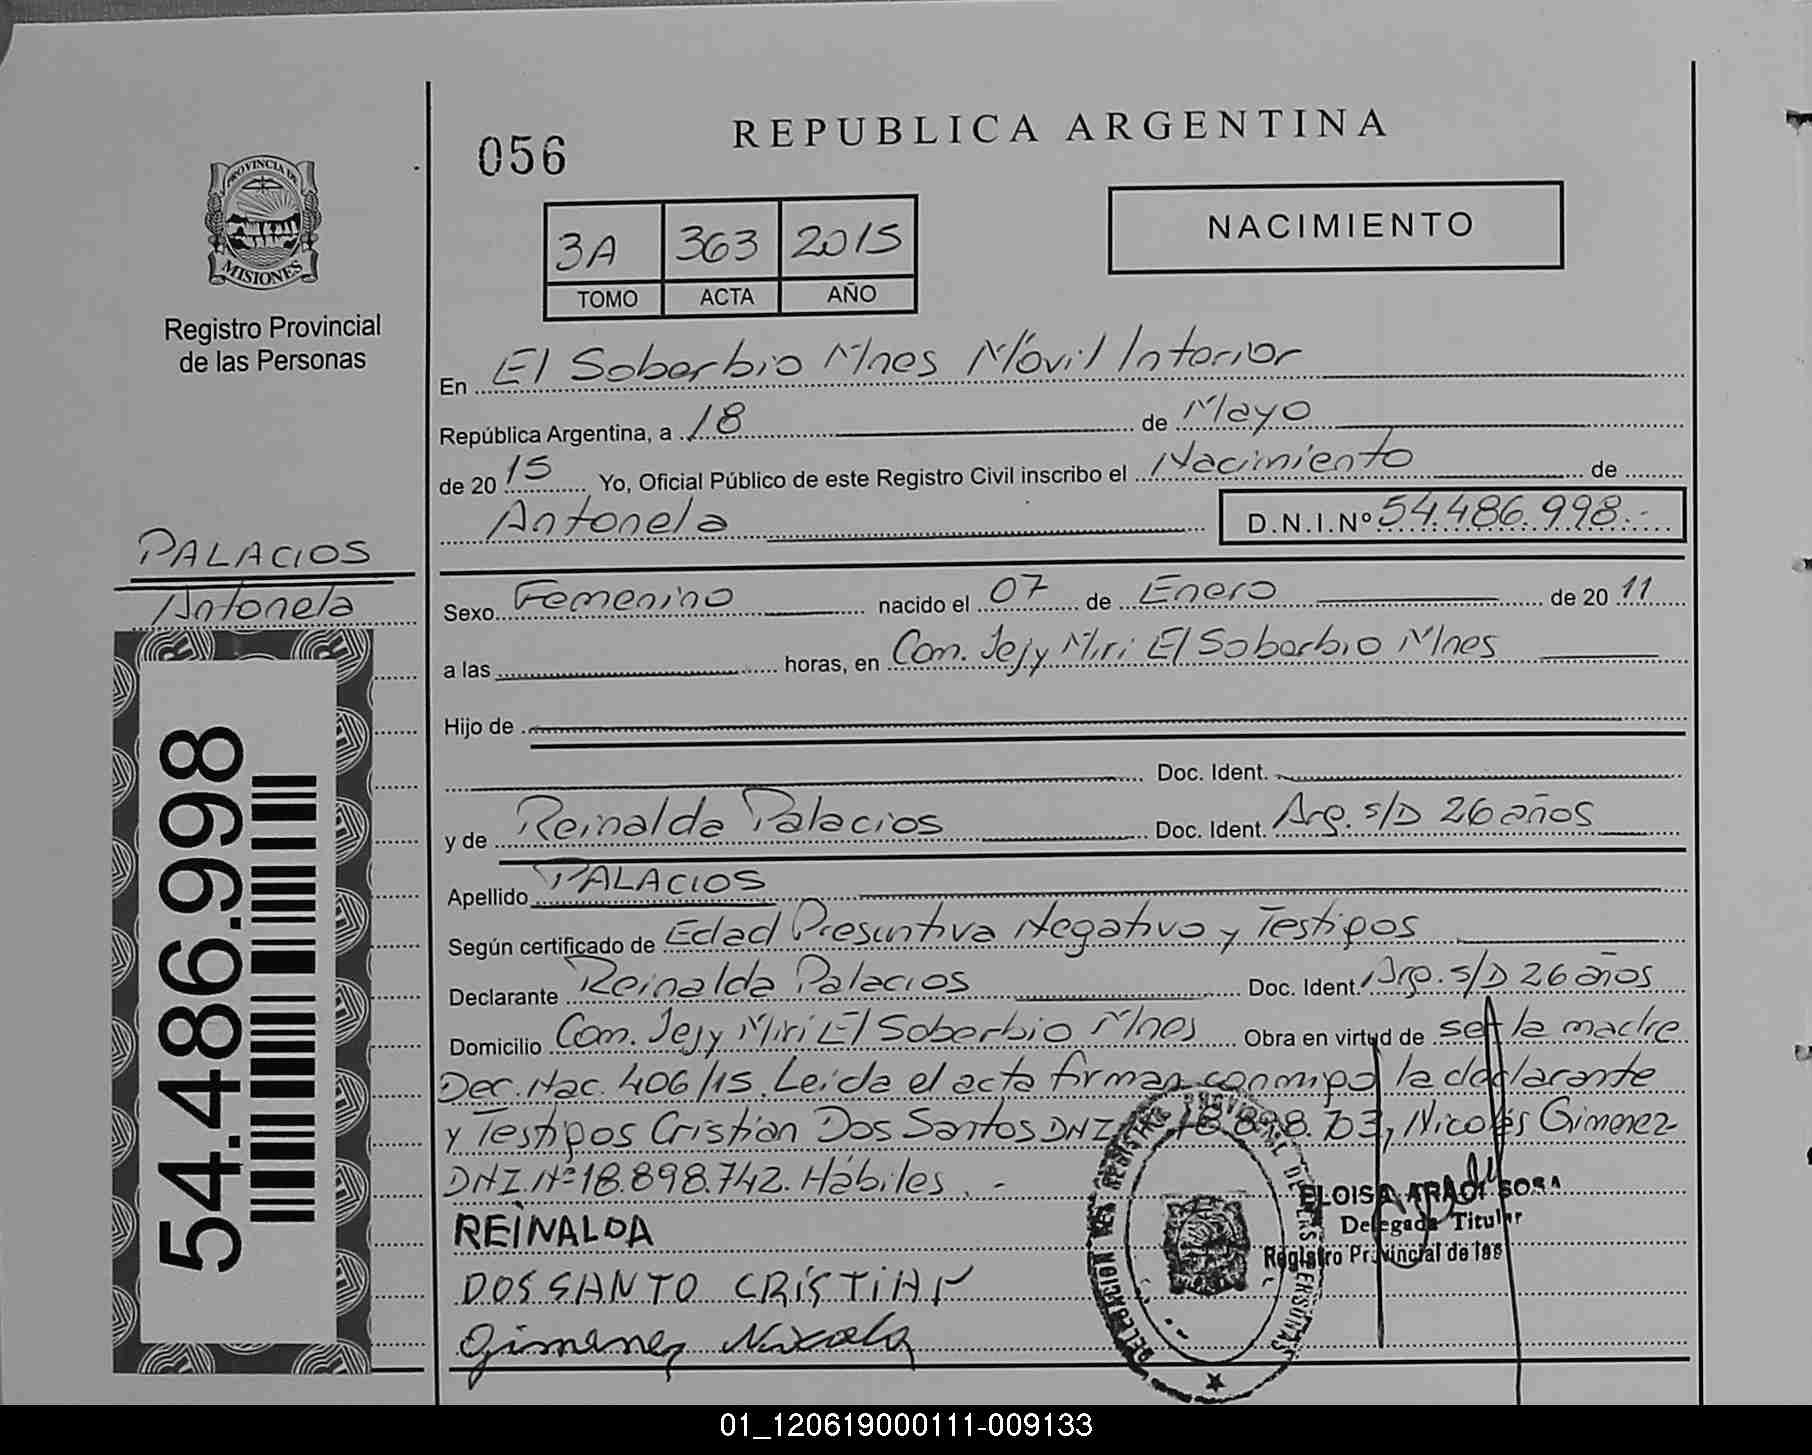 REPUBLICA ARGENTINA
056
NACIMIENTO
3A 363 2015
TOMO ACTA AÑO
PROVINCIA DE
MISIONES
Registro Provincial
de las Personas
En El Soberbio Mnes Móvil Interior
República Argentina, a 18 de Mayo
de 2015 Yo, Oficial Público de este Registro Civil inscribo el Nacimiento de
Antonela D.N.I.Nº 54.486.998.-
PALACIOS
Antonela
Sexo Femenino nacido el 07 de Enero de 20 11
a las horas, en Com. Jejy Miri El Soberbio Mnes
Hijo de
Doc. Ident.
y de Reinalda Palacios Doc. Ident. Arg. s/D 26 años
Apellido PALACIOS
Según certificado de Edad Presuntiva Negativo y Testigos
Declarante Reinalda Palacios Doc. Ident. Arg. s/D 26 años
Domicilio Com. Jejy Miri El Soberbio Mnes Obra en virtud de ser la madre
Dec. Nac. 406/15. Leida el acta firman conmigo la declarante
y Testigos Cristian Dos Santos DNI 18.898.703, Nicolás Gimenez
DNI Nº 18.898.742. Hábiles. -
REINALDA
DOS SANTO CRISTIAN
Gimenez Nicolas
ELOISA SOSA
Delegada Titular
Registro Provincial de las
DELEGACION DEL REGISTRO PROVINCIAL DE LAS PERSONAS
54.486.998
01_120619000111-009133